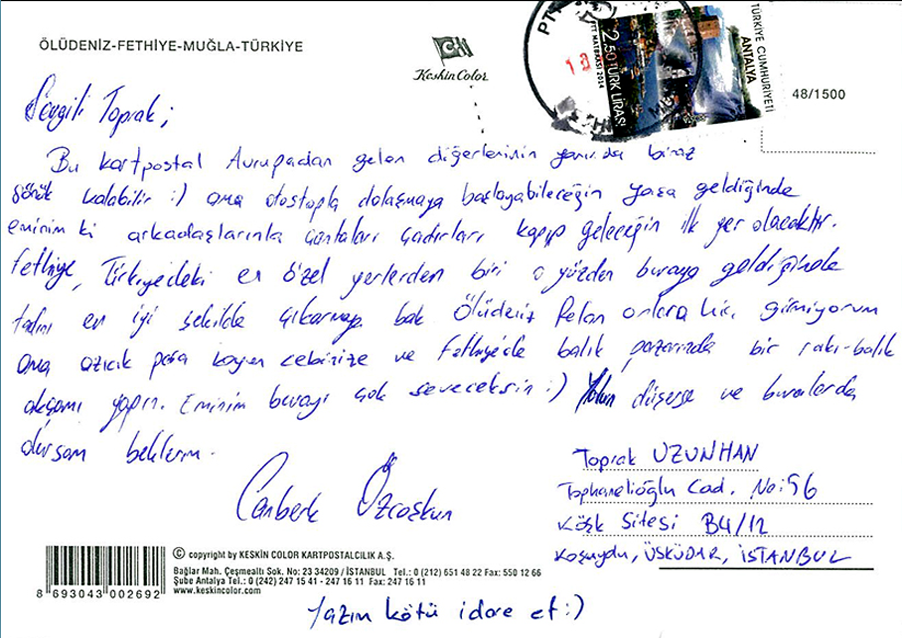 ÖLÜDENİZ-FETHİYE-MUĞLA-TÜRKİYE
Keskin Color
PTT
2.50 TÜRK LİRASI
PTT MATBAASI 2014
TÜRKİYE CUMHURİYETİ
ANTALYA
48/1500
Sevgili Toprak;
Bu kartpostal Avrupadan gelen diğerlerinin yanında biraz
sönük kalabilir :) ama otostopla dolaşmaya başlayabileceğin yaşa geldiğinde
eminim ki arkadaşlarınla çantaları çadırları kapıp geleceğin ilk yer olacaktır.
Fethiye, Türkiye'deki en özel yerlerden biri o yüzden buraya geldiğinde
tadını en iyi şekilde çıkarmaya bak Ölüdeniz felan onlara hiç girmiyorum
ama azıcık para koyun cebinize ve Fethiye'de balık pazarında bir rakı-balık
akşamı yapın. Eminim burayı çok seveceksin :) Yolun düşerse ve buralarda
olursam beklerim.
Canberk Özcoşkun
Toprak UZUNHAN
Tophanelioğlu Cad. No:56
Köşk Sitesi B4/12
Koşuyolu, ÜSKÜDAR, İSTANBUL
8 693043 002692
© copyright by KESKİN COLOR KARTPOSTALCILIK A.Ş.
Bağlar Mah. Çeşmealtı Sok. No: 23 34209 / İSTANBUL Tel.: 0 (212) 651 48 22 Fax: 550 12 66
Şube Antalya Tel.: 0 (242) 247 15 41 - 247 16 11 Fax: 247 16 11
www.keskincolor.com
Yazım kötü idare et :)